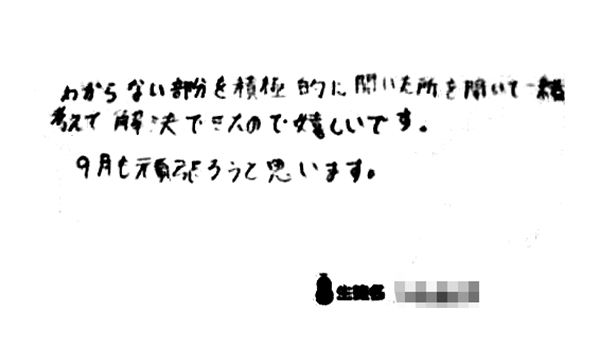 わからない部分を積極的に聞いた所を聞いて一緒
考えて解決できたので嬉しいです。
9月も頑張ろうと思います。
生徒名